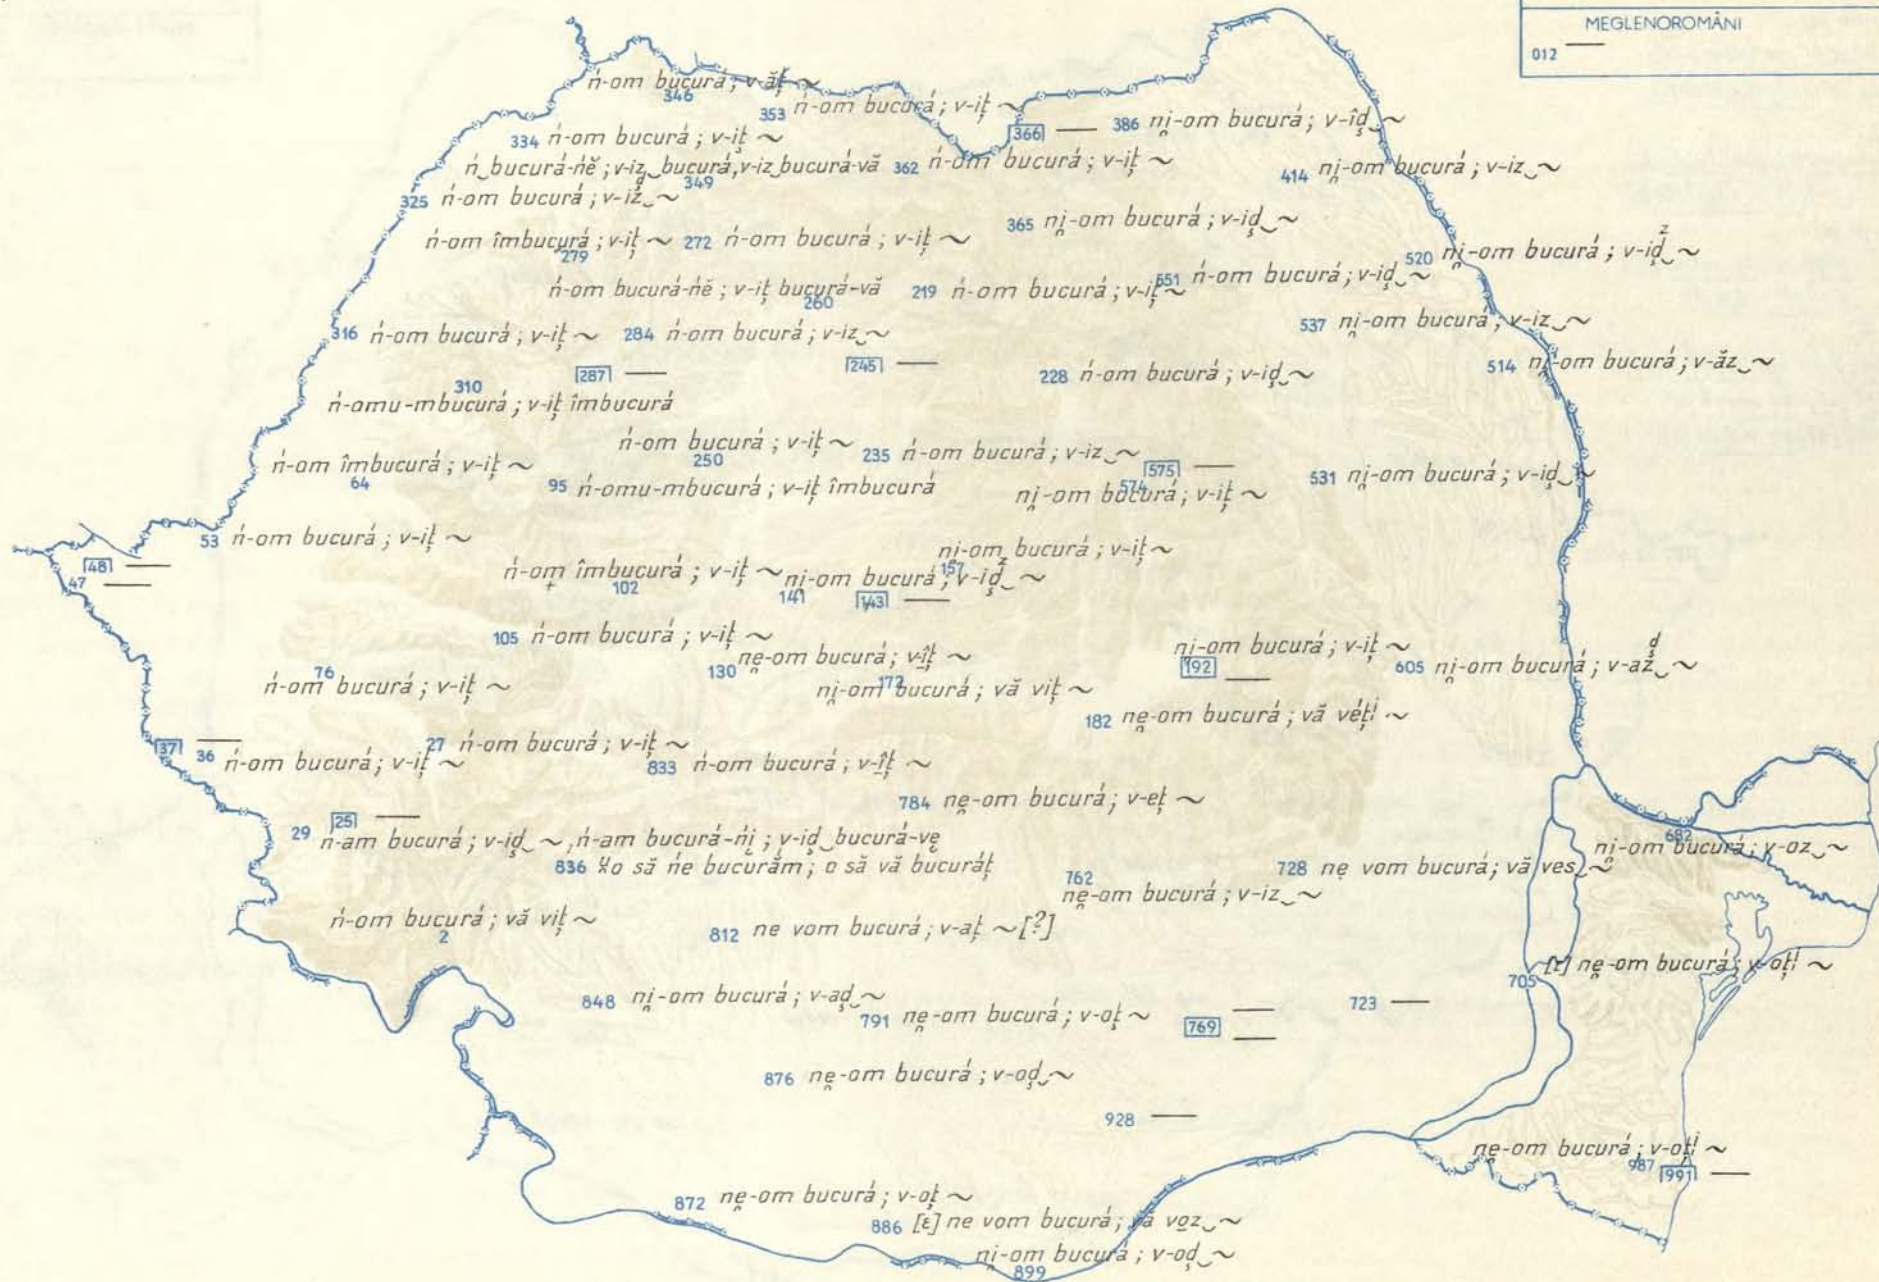 MEGLENOROMÂNI
012 —
ń-om bucurá; v-ăț ~
346
353 ń-om bucurá; v-iț ~
334 ń-om bucurá; v-iț ~
366 —
386 ni̯-om bucurá; v-îḑ‿~
ń‿bucurá-ńĕ; v-iz‿bucurá, v-iz‿bucurá-vă
349
362 ń-om bucurá; v-iț ~
414 ni̯-om bucurá; v-iz‿~
325 ń-om bucurá; v-iz‿~
365 ni̯-om bucurá; v-iḑ‿~
ń-om îmbucurá; v-iț ~
279
272 ń-om bucurá; v-iț ~
520 ni̯-om bucurá; v-iḑ‿~
ń-om bucurá-ńĕ; v-iț bucurá-vă
260
219 ń-om bucurá; v-iț ~
551 ń-om bucurá; v-iḑ‿~
316 ń-om bucurá; v-iț ~
284 ń-om bucurá; v-iz‿~
537 ni̯-om bucurá; v-iz‿~
287 —
245 —
228 ń-om bucurá; v-iḑ‿~
514 ni̯-om bucurá; v-ăz‿~
310
ń-omu-mbucurá; v-iț îmbucurá
ń-om bucurá; v-iț ~
250
235 ń-om bucurá; v-iz‿~
ń-om îmbucurá; v-iț ~
64
95 ń-omu-mbucurá; v-iț îmbucurá
575 —
574
ni̯-om bucurá; v-iț ~
531 ni̯-om bucurá; v-iḑ‿~
53 ń-om bucurá; v-iț ~
48 —
47 —
ni̯-om bucurá; v-iț ~
157
ń-om îmbucurá; v-iț ~
102
ni̯-om bucurá; v-iḑ‿~
141
143 —
105 ń-om bucurá; v-iț ~
130 ne̯-om bucurá; v-îț ~
ni̯-om bucurá; v-iț ~
192 —
605 ni̯-om bucurá; v-az‿~
76
ń-om bucurá; v-iț ~
172
ni̯-om bucurá; vă viț ~
182 ne̯-om bucurá; vă véțⁱ ~
37 —
36 ń-om bucurá; v-iț ~
27 ń-om bucurá; v-iț ~
833 ń-om bucurá; v-îț ~
784 ne̯-om bucurá; v-eț ~
25 —
29 ń-am bucurá; v-iḑ‿~, ń-am bucurá-ńi; v-iḑ‿bucurá-vę
682
ni̯-om bucurá; v-oz‿~
836 o să ńe bucurăm; o să vă bucuráț
762
ne̯-om bucurá; v-iz‿~
728 nę vom bucurá; vă ves‿~
ń-om bucurá; vă viț ~
2
812 ne vom bucurá; v-aț ~ [?]
705 [ɛ] ne̯-om bucurá; v-oțⁱ ~
848 ni̯-om bucurá; v-aḑ‿~
791 ne̯-om bucurá; v-oț ~
769 —
723 —
876 ne̯-om bucurá; v-oḑ‿~
928 —
ne̯-om bucurá; v-oțⁱ ~
987
991 —
872 ne̯-om bucurá; v-oț ~
886 [ɛ] ne vom bucurá; vă voz‿~
ni̯-om bucurá; v-oḑ‿~
899